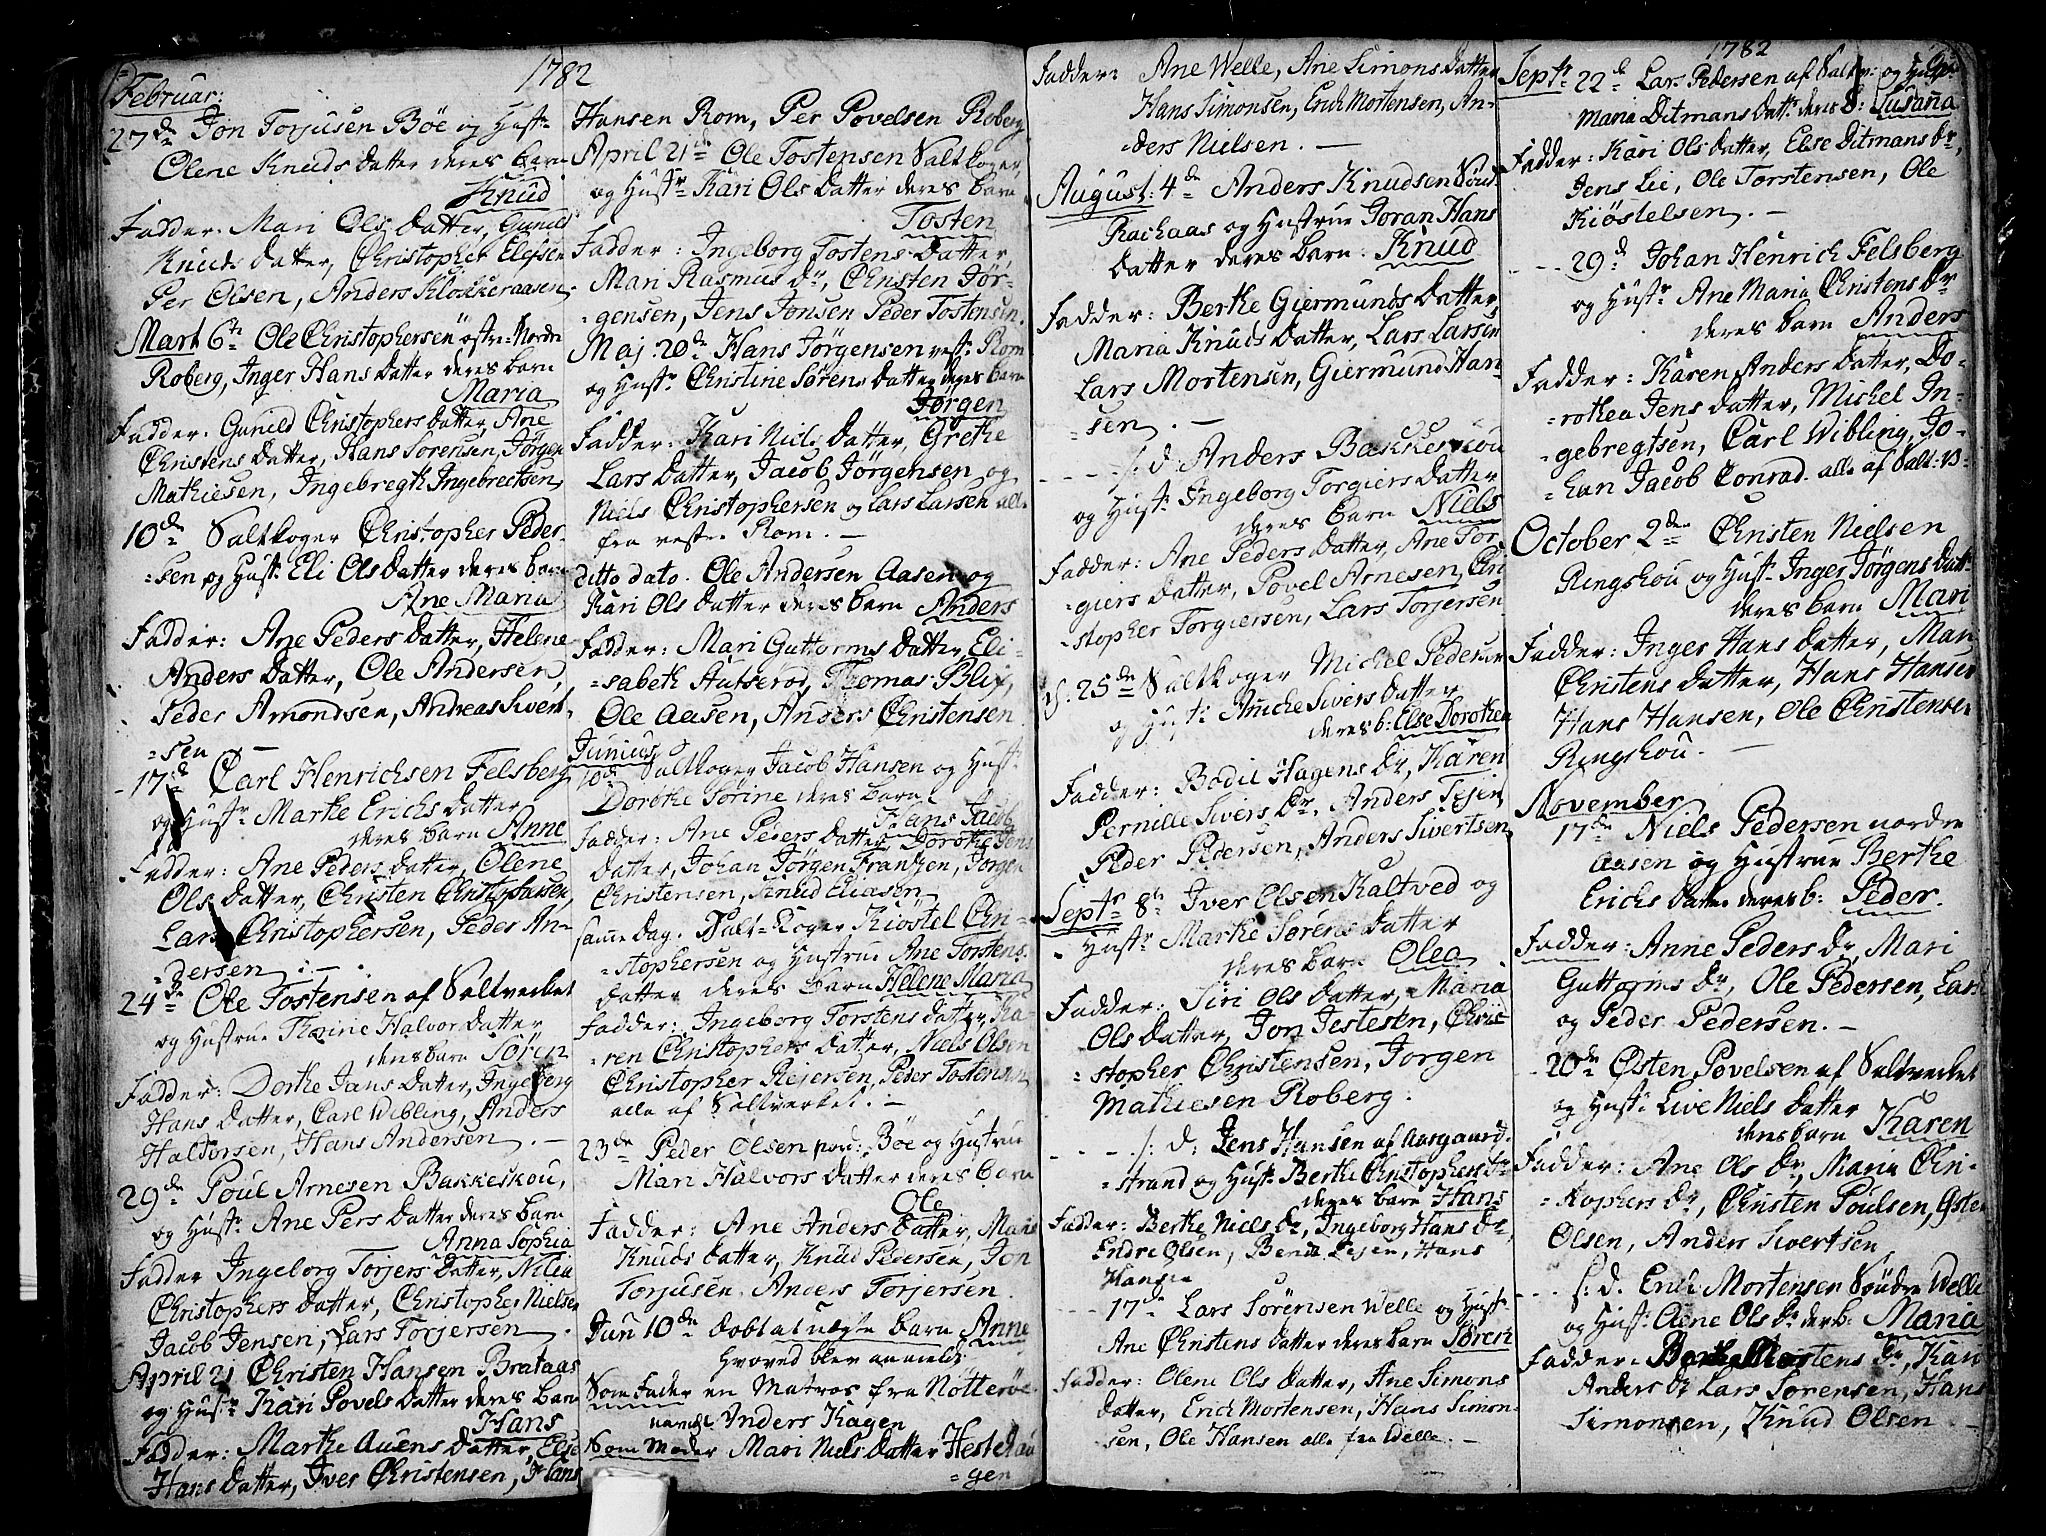 Februar:
1782
27de Jon Torjusen Böe og Hustr
Olene Knuds datter deres barn
Knud
Fadder. Mari Ols datter, Gunild
Knuds datter, Christopher Elefsen
Per Olsen, Anders Klokkeraasen.
Mart 6te Ole Christophersen östre Nordre
Roberg, Inger Hans datter deres barn
Maria
Fadder. Gunild Christophers datter, Ane
Christens datter, Hans Sorensen, Jörgen
Mathiesen, Ingebregth Ingebrectsen
10de Saltkoger Christopher Peder-
=sen og Hust: Eli Ols datter deres barn
Ane Maria
Fadder: Ane Peders datter, Helene
Anders datter, Ole Andersen,
Peder Amondsen, Andreas Sivert-
=sen
17de Carl Henrichsen Felsberg
og Hustr Marthe Erichs datter
deres barn Anne
Fadder: Ane Peders datter, Olene
Ols datter, Christen Christophersen,
Lars Christophersen, Peder An-
=dersen. -
24de Ole Tostensen af Saltverket
og Hustrue Thorine Halvors datter
deres barn Sören
Fadder: Dorthe Jans datter, Ingeborg
Hans datter, Carl Wibling, Anders
Haldorsen, Hans Andersen. -
29de Poul Arnesen Bakkeskou,
og Hustr Ane Pers datter deres barn
Anna Sophia
Fadder Ingeborg Torjers datter, Nilia
Christophers datter, Christopher Nielsen
Jacob Jensen, Lars Torjersen.
April 21 Christen Hansen Brataas
og Hustr Kari Povels datter deres barn
Hans
Fadder: Marthe Auens datter, Else
Hans datter, Iver Christensen, Hans
Hansen Rom, Per Povelsen Roberg
April 21de Ole Tostensen Saltkoger,
og Hustr Kari Ols datter deres barn
Tosten
Fadder: Ingeborg Tostens datter,
Mari Rasmus Dr, Christen Jör-
=gensen, Jens Jonsen Peder Tostensen.
Maj: 20de Hans Jörgensen vest: Rom
og Hustr Christine Sörens datter deres barn
Jörgen
Fadder: Kari Niels datter, Grethe
Lars datter, Jacob Jörgensen og
Niels Christophersen og Lars Larsen alle
fra vestre Rom. -
ditto dato. Ole Andersen Aasen og
Kari Ols datter deres barn Anders
Fadder: Mari Guttorms datter, Eli-
=sabeth Hutserod, Thomas Blix,
Ole Aasen, Anders Christensen
Junius
10de Saltkoger Jacob Hansen og Hust:
Dorothe Sörine deres barn
Hans Jacob
Fadder: Ane Peders datter, Dorothe Jens
datter, Johan Jörgen Frantzen, Jörgen
Christensen, Knud Eliasen
samme dag. Salt-Koger Kiöstel Chri-
=stophersen og Hustrue Ane Torstens
datter deres barn Helene Maria
Fadder: Ingeborg Torstens datter, Ka-
=ren Christophers datter, Niels Olsen
Christopher Reiersen, Peder Tostensen
alle af Saltverket. -
23de Peder Olsen nord: Böe og Hustrue
Mari Halvors datter deres barn
Ole
Fadder: Ane Anders datter, Mari
Knuds datter, Knud Pedersen, Jon
Torjusen. Anders Torjersen.
Jun 10de döbt et uægte barn Anne
hvoved blev anmeldt
Som Fader en Matros fra Nötteröe
navnl: Anders Hagen
Som Moder Mari Niels datter Hestehau
=gen
Fadder: Ane Welle, Ane Simons datter
Hans Simonsen, Erich Mortensen, An-
=ders Nielsen. -
August: 4de Anders Knudsen Sönd:
Rachaas og Hustrue Joran Hans
datter deres barn. Knud
Fadder: Berthe Giermunds datter
Maria Knuds datter, Lars Larsen
Lars Mortensen, Giermund Han-
=sen. -
- - - s: d. Anders Bakkeskou
og Hust: Ingeborg Torgiers datter
deres barn Niels
Fadder: Ane Peders datter, Ane Tor-
=giers datter, Povel Arnesen, Chri
=stopher Torgiersen, Lars Torjersen
d: 25de Saltkoger Michel Pedersen
og Hust: Anniche Sivers datter
deres b: Else Dorothea
Fadder: Bodil Hagens Dr, Karen
Pernille Sivers Dr, Anders Tejen
Peder Pedersen, Anders Sivertsen
Septr 8de Iver Olsen Kaltved og
Hustr Marthe Sörens datter
deres barn Olea
Fadder: Siri Ols datter, Maria
Ols datter, Jon Jestesen, Chri-
=stopher Christensen, Jorgen
Mathiesen Roberg.
- - - s: d, Jens Hansen af Aasgaard-
=strand og Hust: Berthe Christophers Dr
deres barn Hans
Fadder: Berthe Niels Dr, Ingeborg Hans Dr,
Endre Olsen, Bendt Tejen, Hans
Hansen
- - - 17de Lars Sörensen Welle og Hust:
Ane Christens datter deres barn Sören
Fadder: Olene Ols datter, Ane Simons
datter, Erich Mortensen, Hans Simon-
sen, Ole Hansen alle fra Welle. -
1782
Septr 22de Lars Pedersen af Saltv: og Hustr
Maria Ditmans datr deres b: Susanna
Fadder: Kari Ols datter, Else Ditmans Dr,
Jens Lie, Ole Torstensen, Ole
Kiöstelsen. -
- - - 29de Johan Henrich Felsberg
og Hustr Ane Maria Christens Dr
deres barn Anders
Fadder: Karen Anders datter, Do-
=rothea Jens datter, Michel In-
=gebregtsen, Carl Wibling, Jo-
=han Jacob Conrad. alle af Salt: V:
October 2den Christen Nielsen
Ringshou og Hust: Inger Jörgens datr
deres barn Mari
Fadder: Inger Hans datter, Mari
Christens datter, Hans Hansen
Hans Hansen, Ole Christensen
Ringshou. -
November
17de Niels Pedersen nordre
Aasen og Hustrue Berthe
Erichs datter deres b: Peder.
Fadder: Anne Peders Dr, Mari
Guttorms Dr, Ole Pedersen, Lars
og Peder Pedersen. -
20de Östen Povelsen af Saltverket
og Hust: Live Niels datter
deres barn Karen
Fadder: Ane Ols Dr, Maria Chri-
=stophers Dr, Christen Poulsen, Östen
Olsen, Anders Sivertsen
- - - s: d. Erich Mortensen Söndre Welle
og Hust: Olene Ols Dr deres b: Maria
Fadder: Mortens Dr, Kari
Anders Dr Lars Sorensen, Hans
Simonsen, Knud Olsen. -